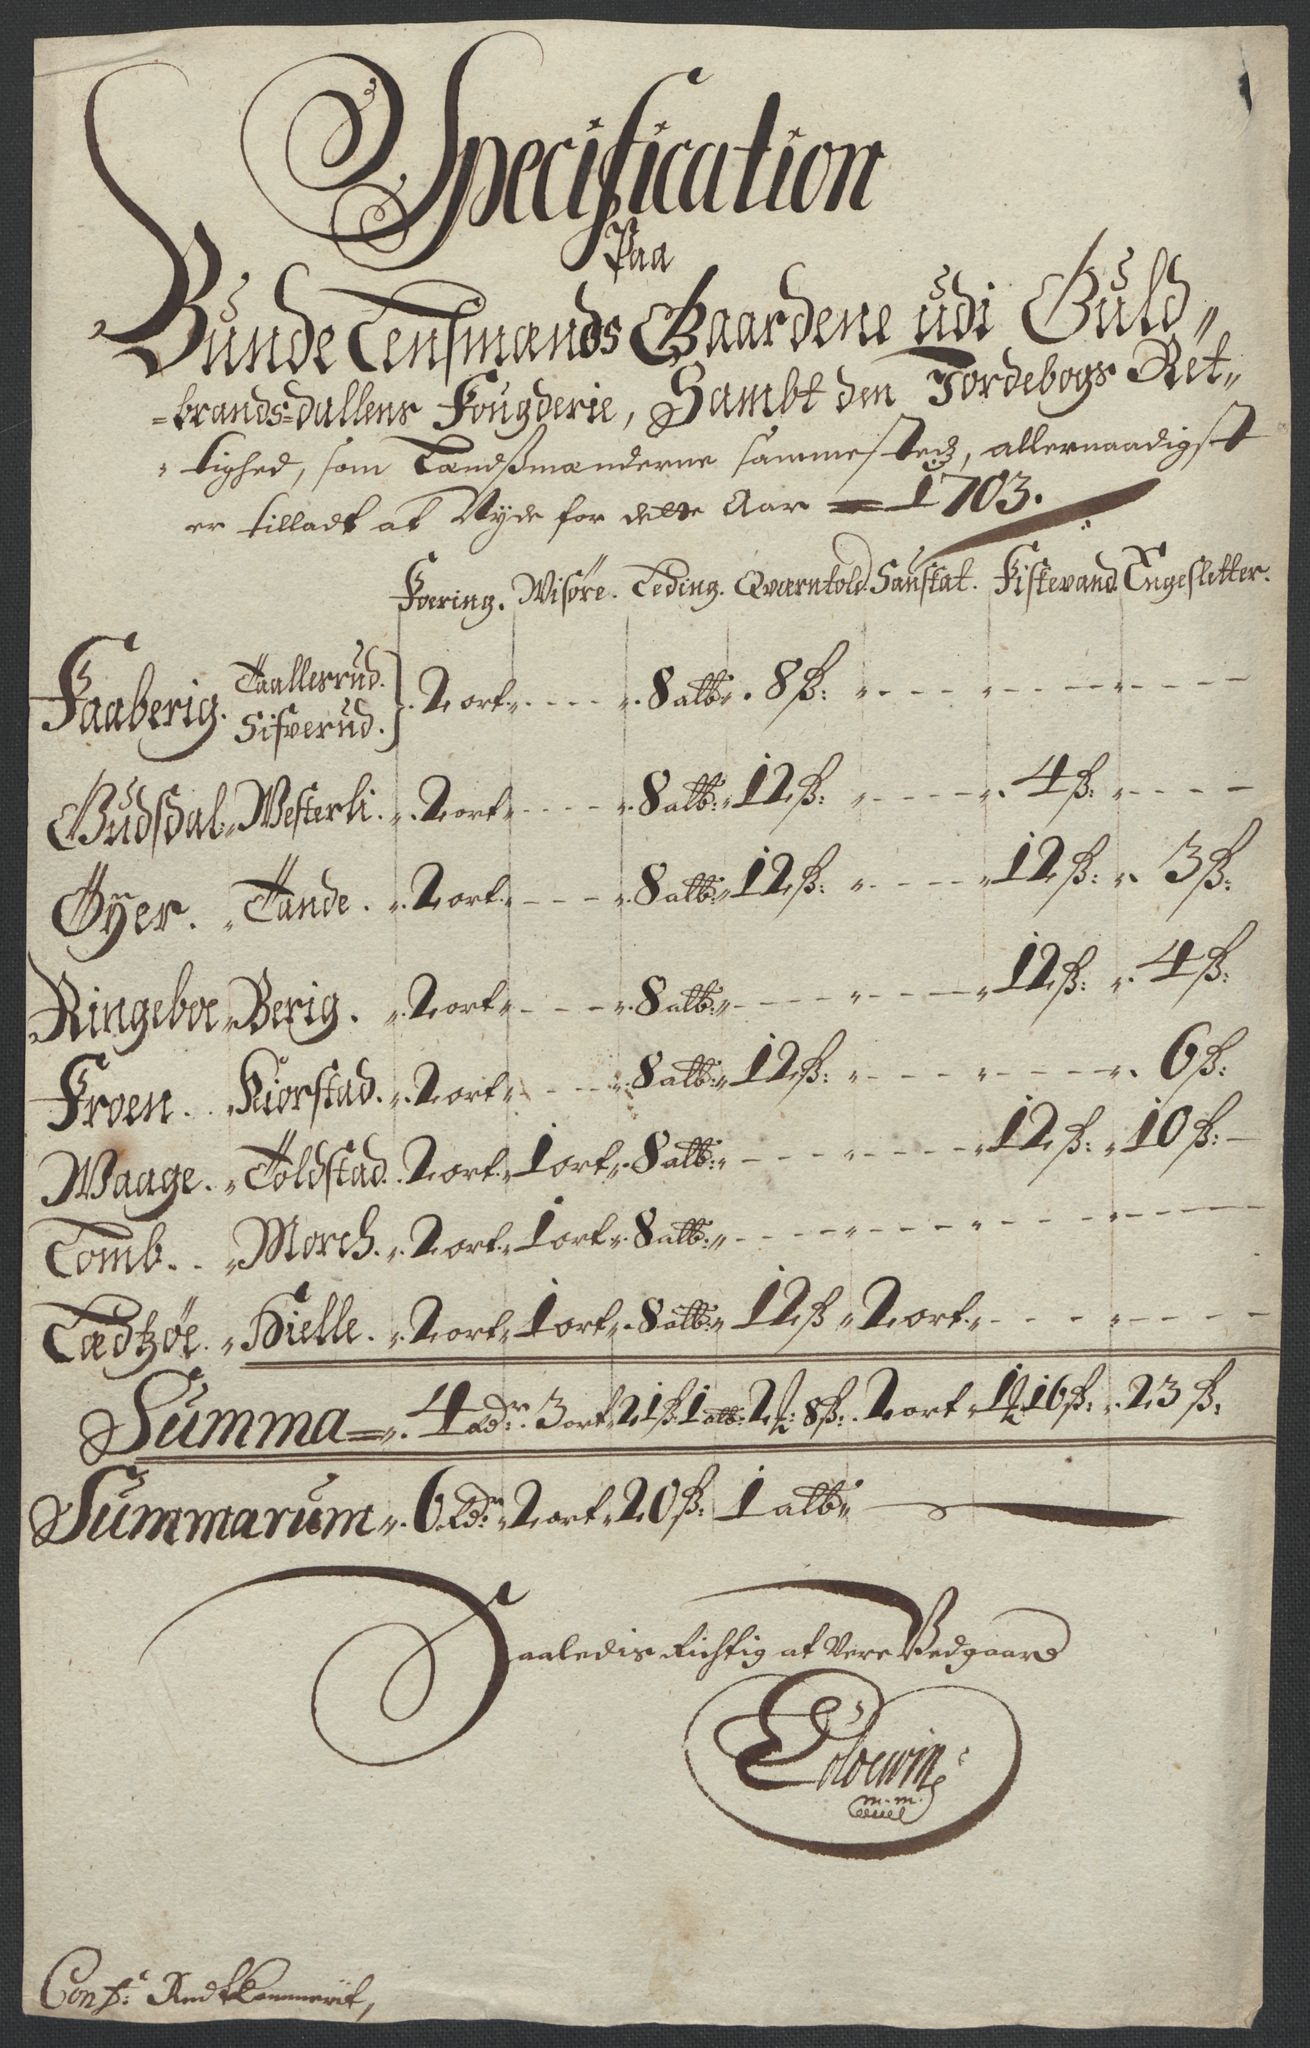 Specification
Paa
Bunde Lensmands Gaardene udi Guld„
„brands„dallens Fougderie, Sambt den Jordebogs Ret„
„tighed, som Lændsmænderne sammesteds, allernaadigst
er tilladt at Nyde for dette Aar = 1703.
Foering. Wisøre. Leding. Qværntold. Saustat. Fiskevand. Engesletter.
Faaberig. Taallerud. Sifverud. } 2 ort 8 alb 8 ß:
Gudsdal. Westerli. 2 ort 8 alb: 12 ß: 4 ß:
Øyer. Tande. 2 ort 8 alb: 12 ß: 12 ß: 3 ß:
Ringeboe Berig. 2 ort 8 alb: 12 ß: 4 ß:
Froen. Kiorstad. 2 ort 8 alb: 12 ß: 6 ß:
Waage. Toldstad. 2 ort 1 ort 8 alb: 12 ß: 10 ß:
Lomb. Morch. 2 ort 1 ort 8 alb:
Lædtzøe. Hielle. 2 ort 1 ort 8 alb: 12 ß 2 ort
Summa = 4 rdr. 3 ort 21 ß 1 alb: 2 ℔: 8 ß: 2 ort 1 ℔ 16 ß: 23 ß:
Summarum 6 rdr. 2 ort 20 ß: 1 alb
Saaledis Richtig at Vere Bedgaard
m.m.
Conf: Rendtkammerit,